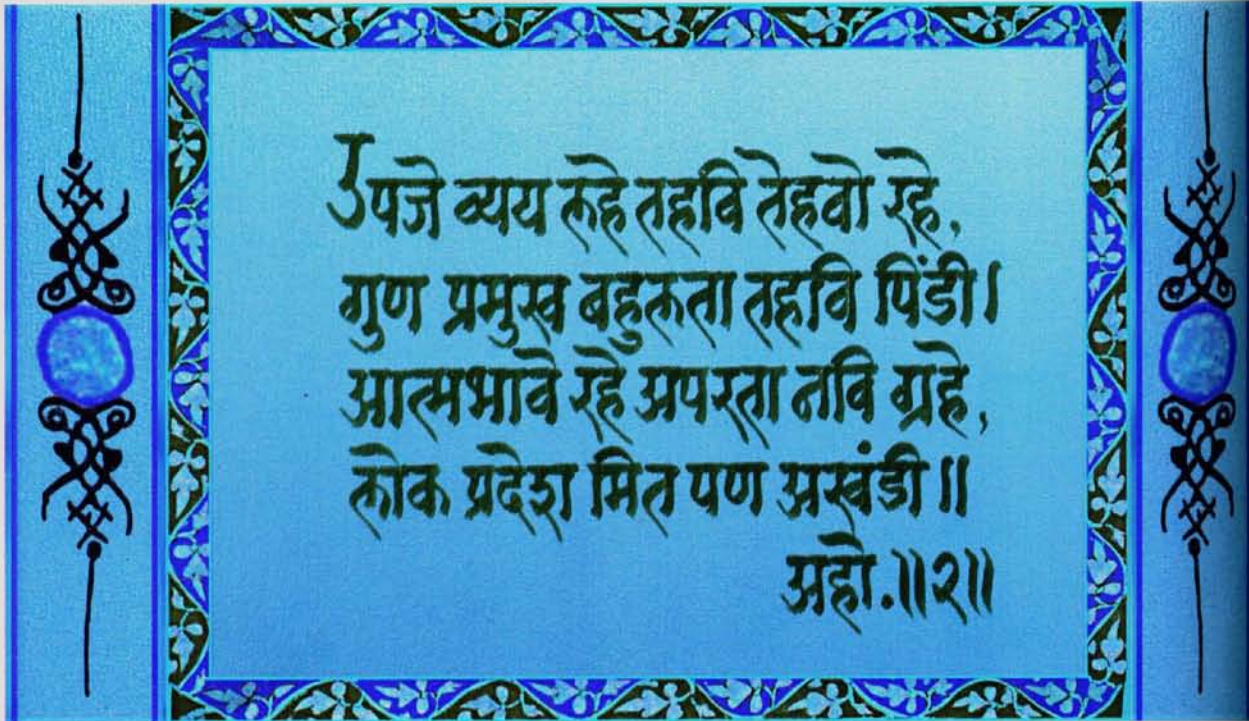 उपजे व्यय लहे तहवि तेहवो रहे,
गुण प्रमुख बहुलता तहवि पिंडी।
आत्मभावे रहे अपरता नवि ग्रहे,
लोक प्रदेश मित पण अखंडी॥
अहो.॥२॥